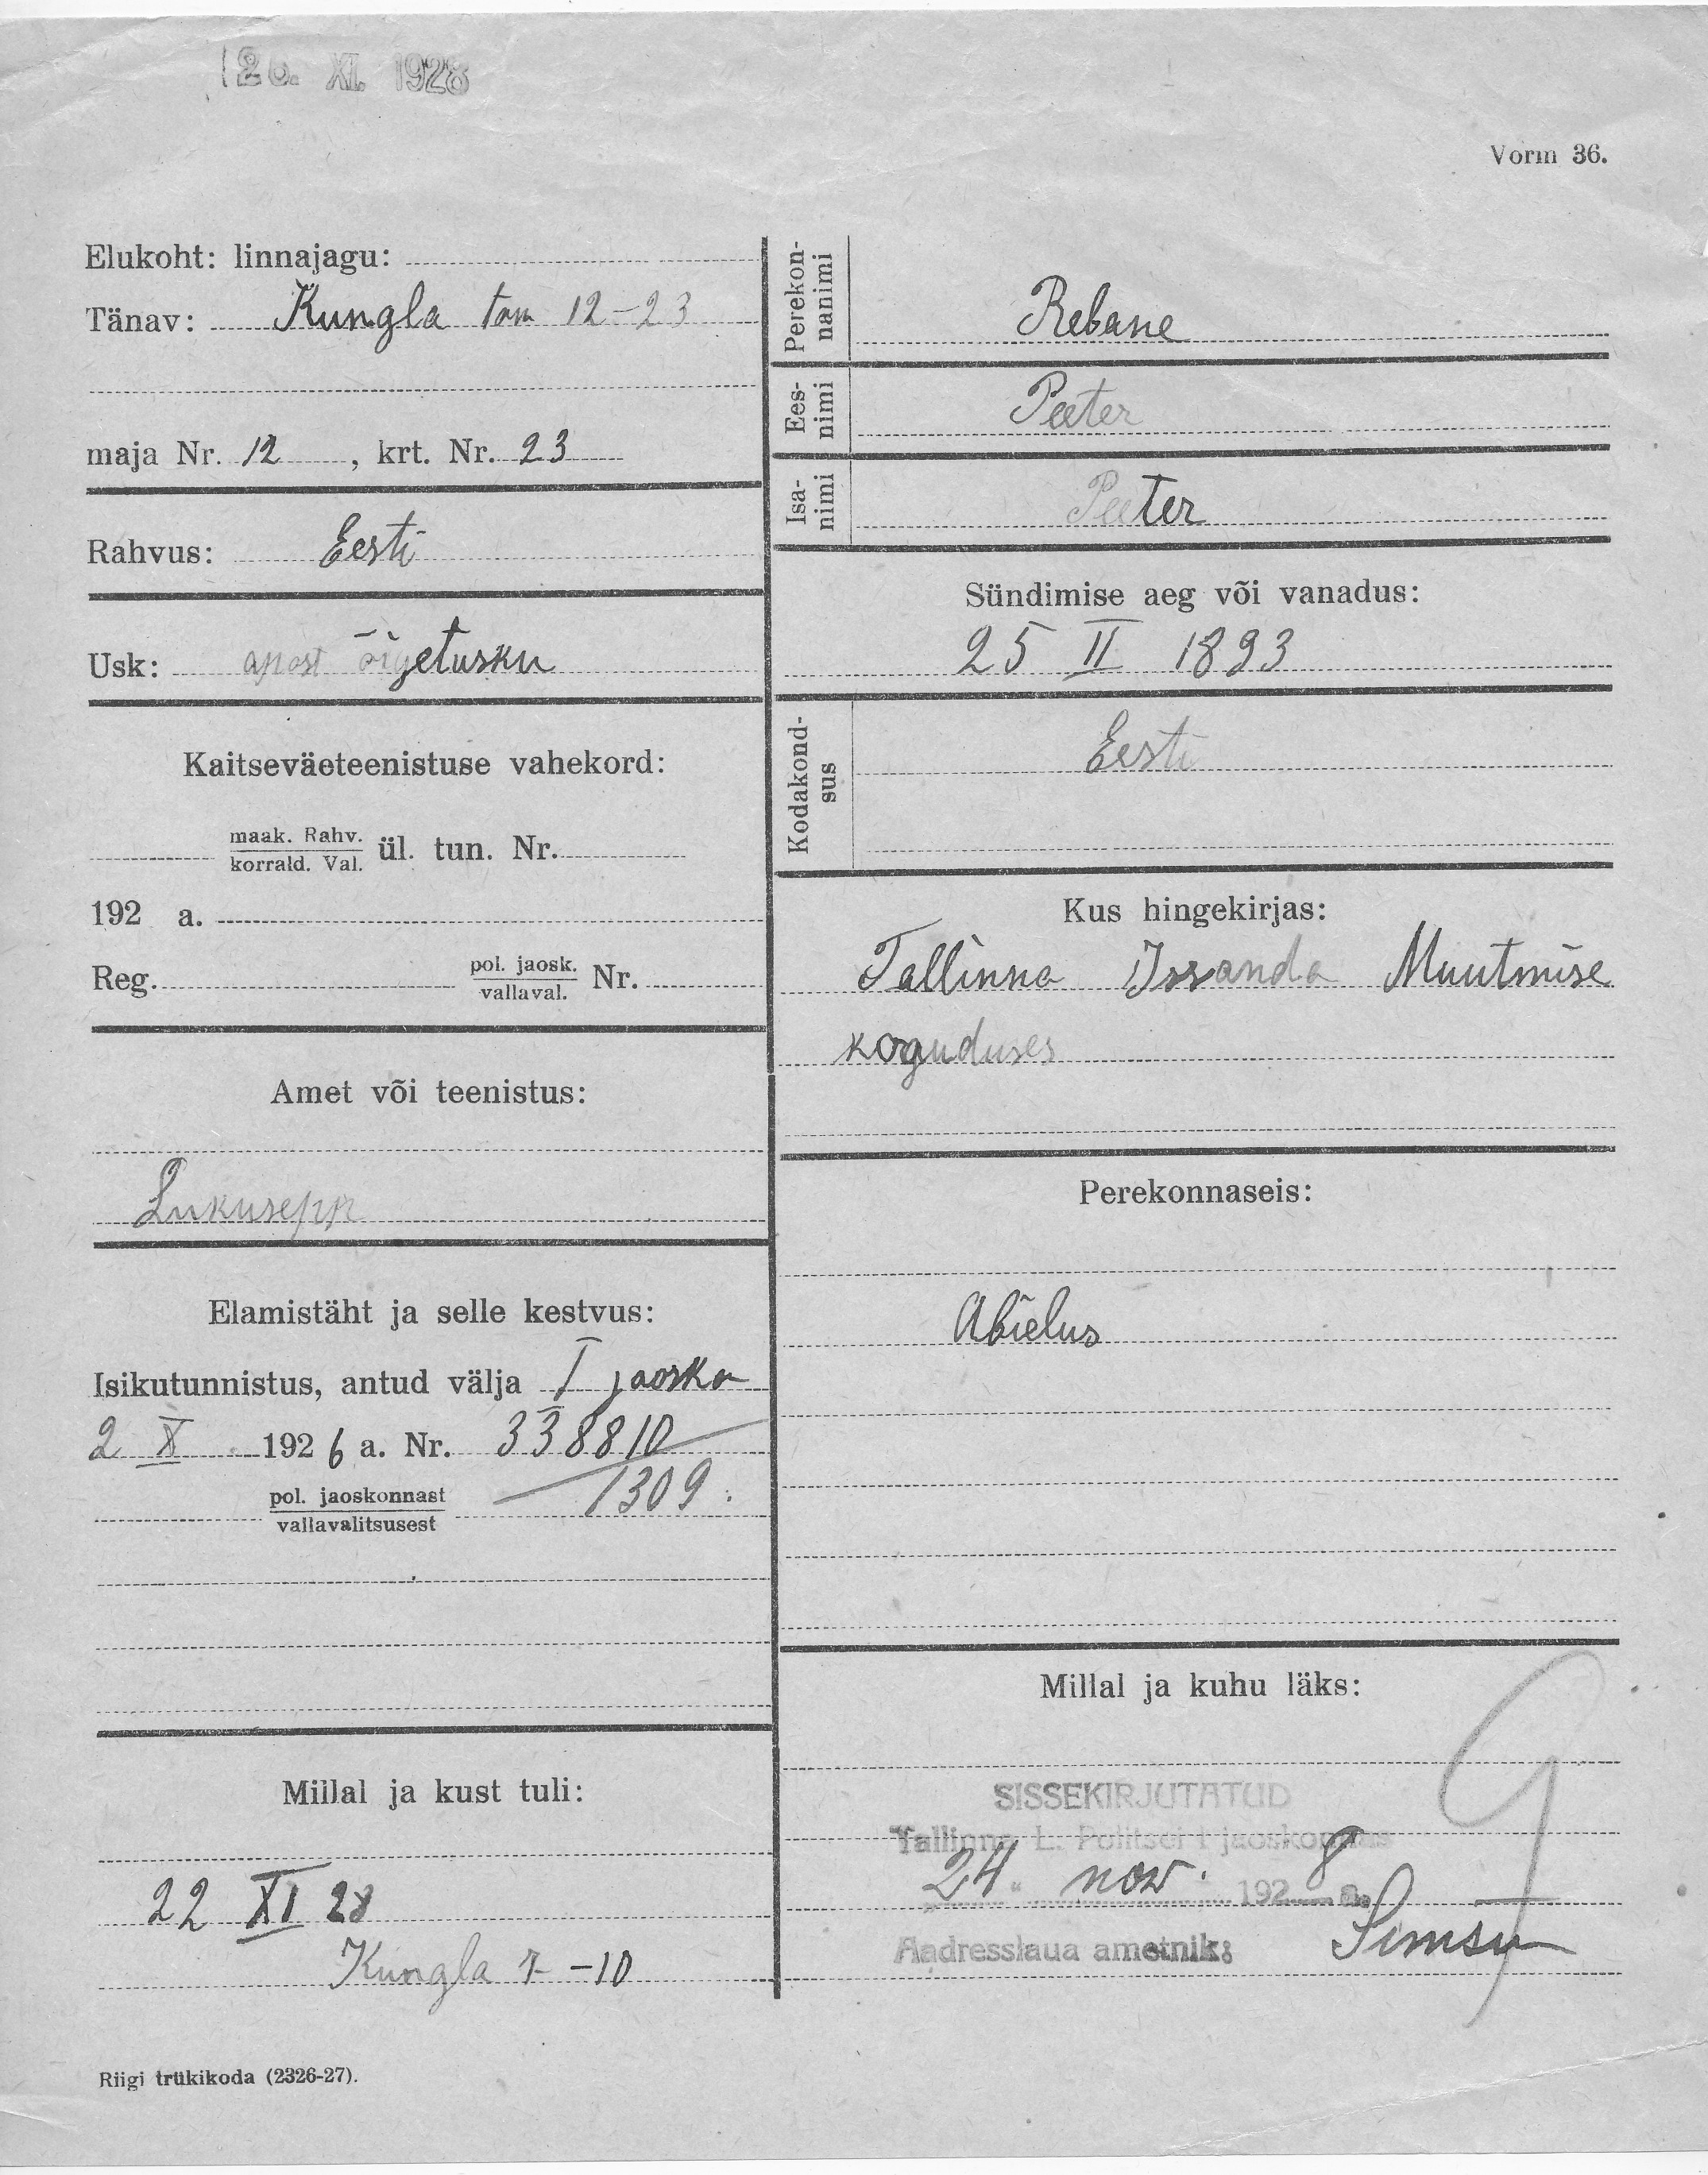 26. XI. 1928
Vorm 36.
Elukoht: linnajagu:
Tänav: Kungla tän 12-23
maja Nr. 12, krt. Nr. 23
Rahvus: Eesti
Usk: apost õigetusku
Kaitseväeteenistuse vahekord:
maak. Rahv.
korrald. Val. ül. tun. Nr.
192 a.
Reg. pol. jaosk.
vallaval. Nr.
Amet või teenistus:
Lukusepp
Elamistäht ja selle kestvus:
Isikutunnistus, antud välja I jaosko
2 X 1926 a. Nr. 338810
1309.
pol. jaoskonnast
vallavalitsusest
Millal ja kust tuli:
22 XI 28
Kungla 7-10
Riigi trükikoda (2326-27).
Perekon-
nanimi
Rebane
Ees-
nimi
Peeter
Isa-
nimi
Peeter
Sündimise aeg või vanadus:
25 II 1893
Kodakond-
sus
Eesti
Kus hingekirjas:
Tallinna Issanda Muutmise
koguduses
Perekonnaseis:
Abielus
Millal ja kuhu läks:
SISSEKIRJUTATUD
Tallinna L. Politsei I jaoskonnas
24 nov. 1928 a.
Aadresslaua ametnik:
9